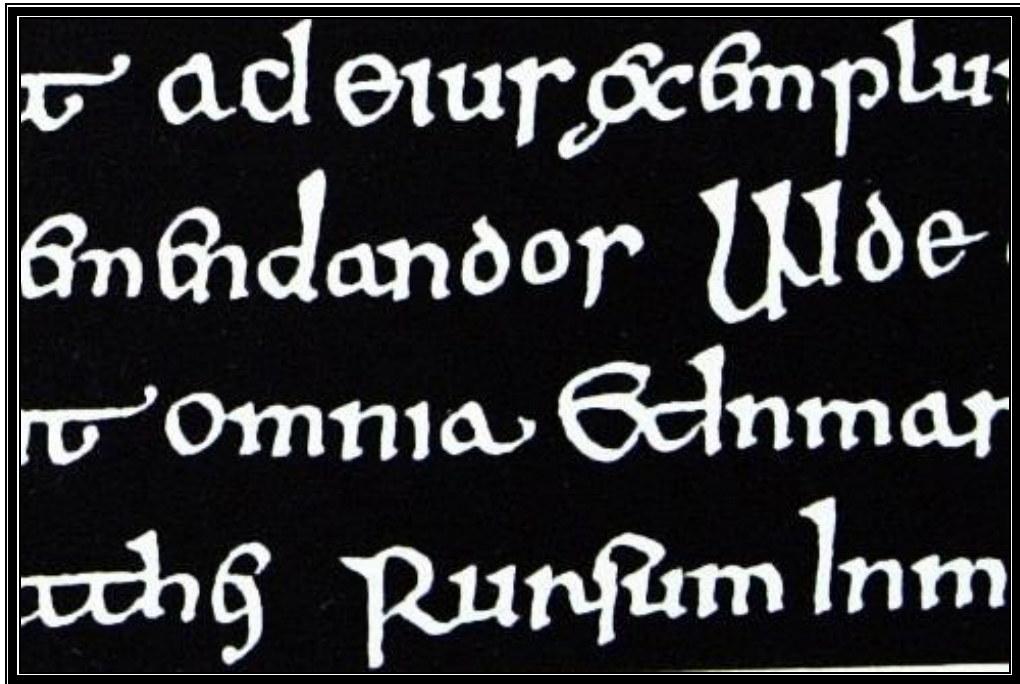 t ad eius exemplu
emendandos Uide
t omnia Et Inmar
atthei Rursum Inm